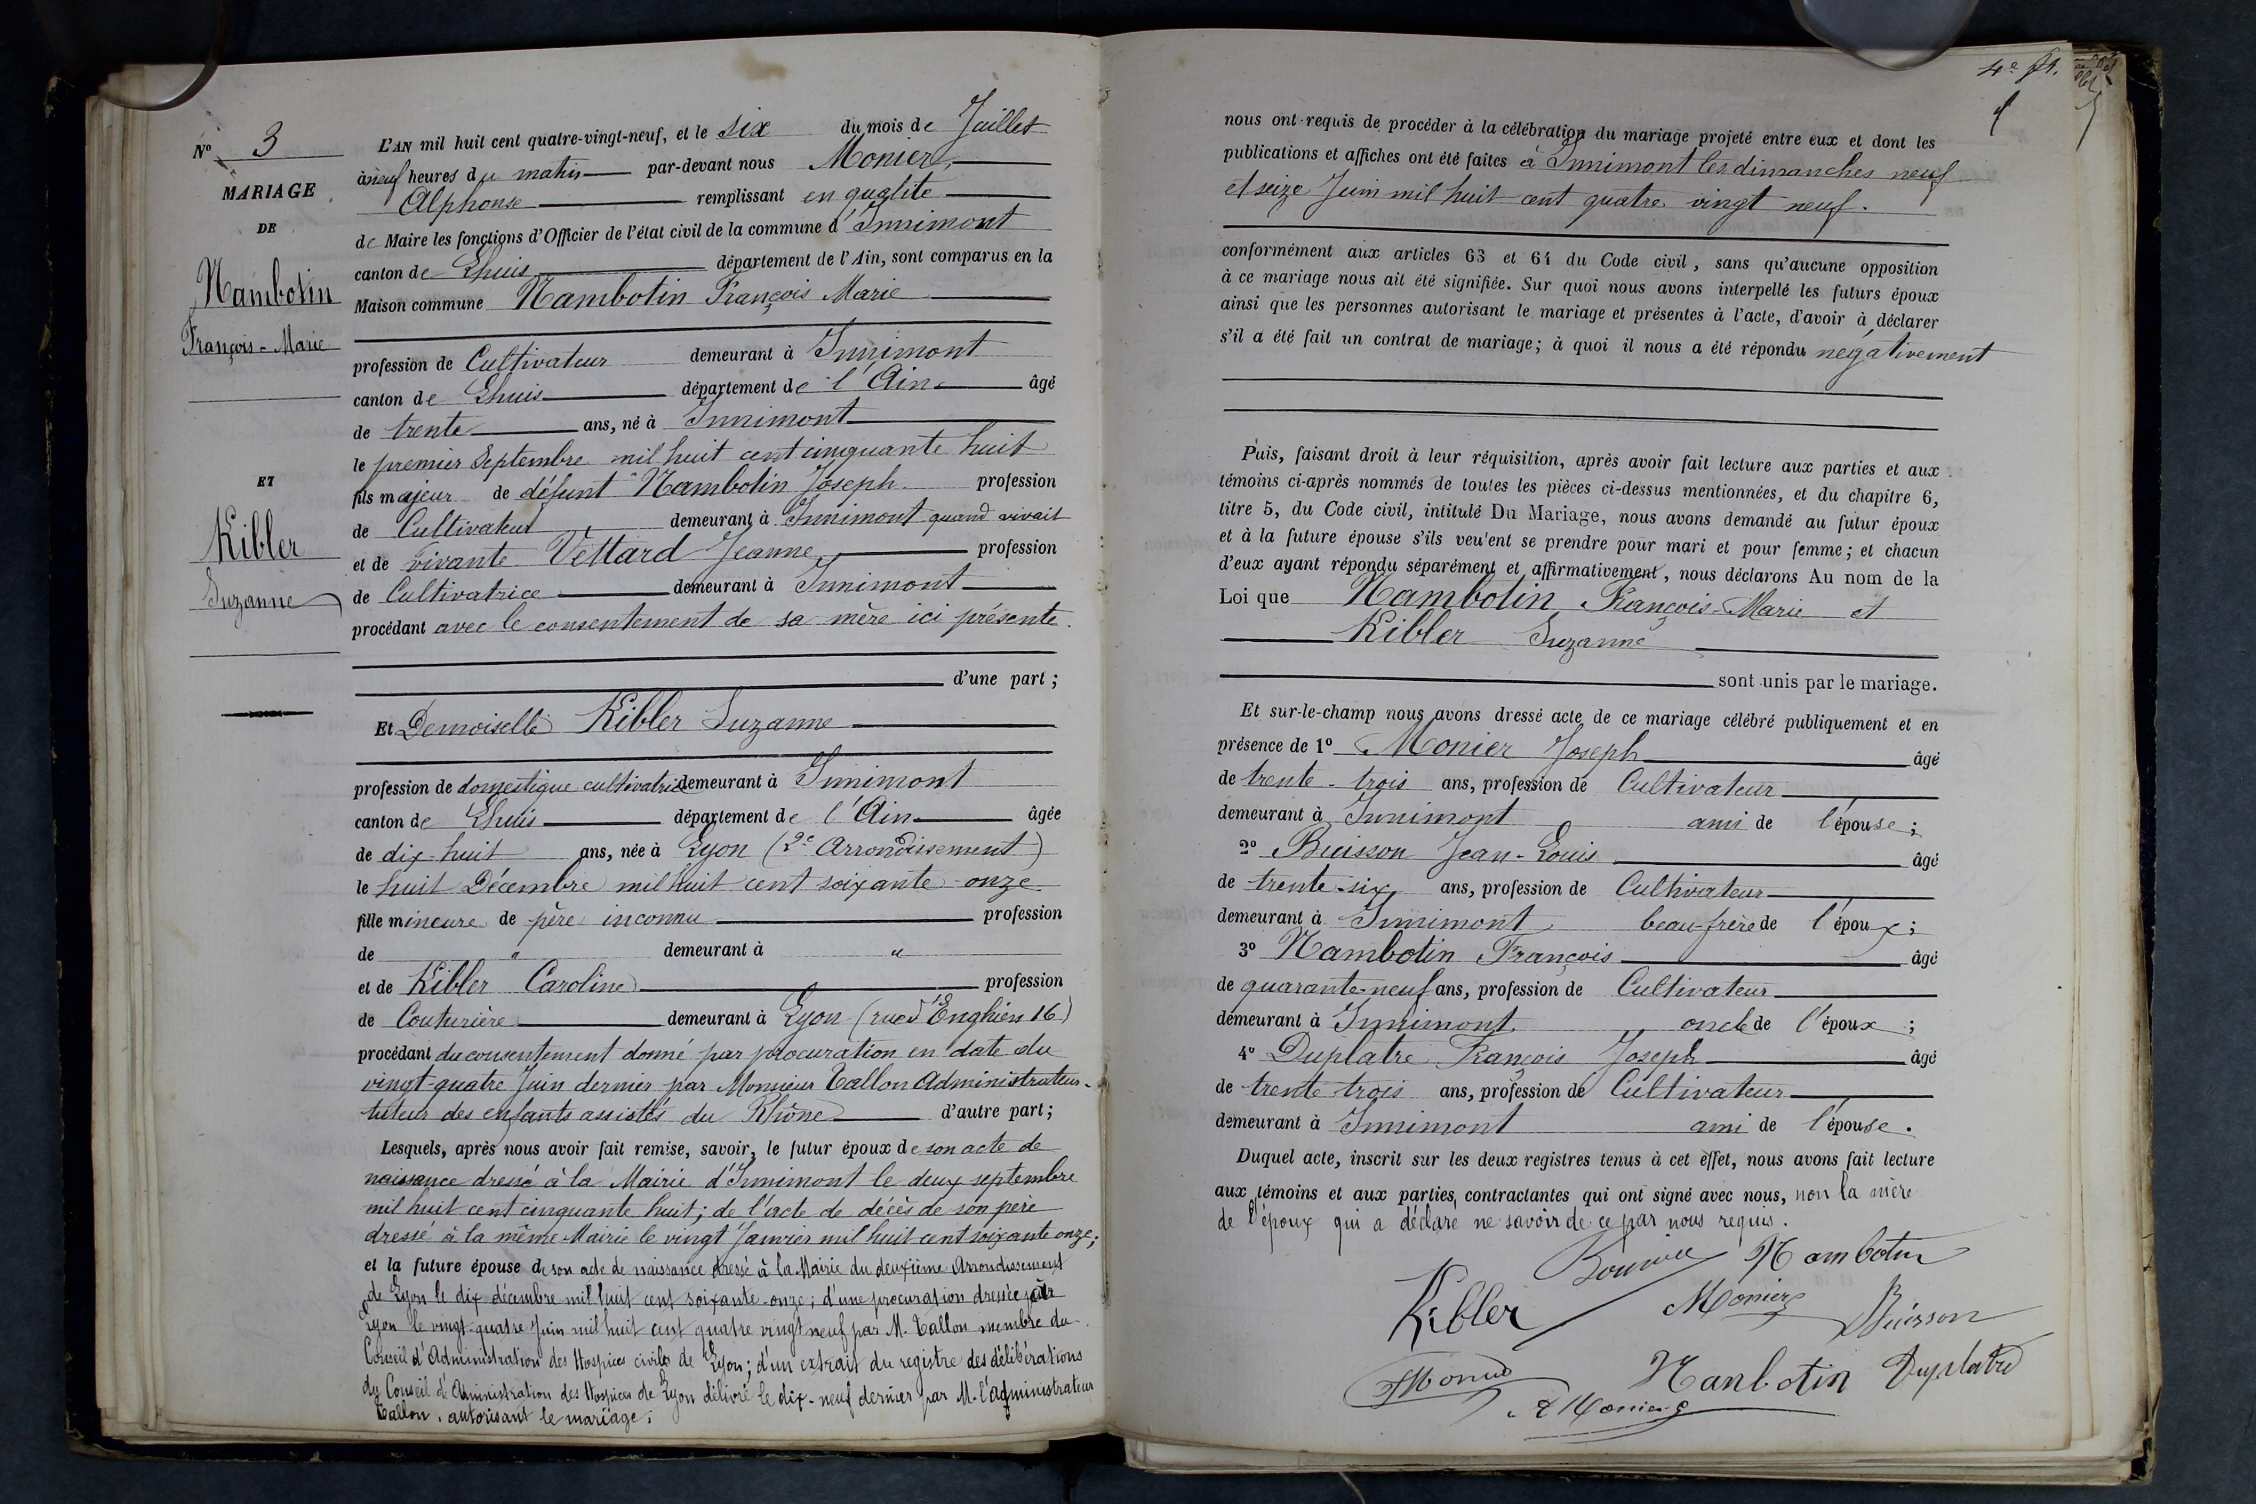 Nº 3
MARIAGE
DE
Nambotin
François-Marie
ET
Kibler
Suzanne
L'AN mil huit cent quatre-vingt-neuf, et le six du mois de Juillet
à neuf heures du matin par-devant nous Monier,
Alphonse remplissant en qualité
de Maire les fonctions d'Officier de l'état civil de la commune d'Innimont
canton de Lhuis département de l'Ain, sont comparus en la
Maison commune Nambotin François Marie
profession de Cultivateur demeurant à Innimont
canton de Lhuis département de l'Ain âgé
de trente ans, né à Innimont
le premier Septembre mil huit cent cinquante huit
fils majeur de défunt Nambotin Joseph profession
de Cultivateur demeurant à Innimont quand vivait
et de vivante Vettard Jeanne, profession
de Cultivatrice demeurant à Innimont
procédant avec le consentement de sa mère ici présente.
d'une part ;
Et Demoiselle Kibler Suzanne
profession de domestique cultivatrice demeurant à Innimont
canton de Lhuis département de l'Ain âgée
de dix-huit ans, née à Lyon (2e Arrondissement)
le huit Décembre mil huit cent soixante-onze
fille mineure de père inconnu profession
de " demeurant à "
et de Kibler Caroline profession
de Couturière demeurant à Lyon (rue d'Enghien 16)
procédant du consentement donné par procuration en date du
vingt-quatre Juin dernier par Monsieur Tallon Administrateur-
tuteur des enfants assistés du Rhône d'autre part ;
Lesquels, après nous avoir fait remise, savoir, le futur époux de son acte de
naissance dressé à la Mairie d'Innimont le deux septembre
mil huit cent cinquante huit ; de l'acte de décès de son père
dressé à la même Mairie le vingt Janvier mil huit cent soixante onze ;
et la future épouse de son acte de naissance dressé à la Mairie du deuxième Arrondissement
de Lyon le dix décembre mil huit cent soixante-onze ; d'une procuration dressée à
Lyon le vingt-quatre Juin mil huit cent quatre vingt neuf par M. Tallon membre du
Conseil d'Administration des Hospices civils de Lyon ; d'un extrait du registre des délibérations
du Conseil d'Aministration des Hospices de Lyon délivré le dix-neuf dernier par M. l'administrateur
Tallon, autorisant le mariage ;
4e ft.
nous ont requis de procéder à la célébration du mariage projeté entre eux et dont les
publications et affiches ont été faites à Innimont les dimanches neuf
et seize Juin mil huit cent quatre vingt neuf.
conformément aux articles 63 et 64 du Code civil, sans qu'aucune opposition
à ce mariage nous ait été signifiée. Sur quoi nous avons interpellé les futurs époux
ainsi que les personnes autorisant le mariage et présentes à l'acte, d'avoir à déclarer
s'il a été fait un contrat de mariage ; à quoi il nous a été répondu négativement
Puis, faisant droit à leur réquisition, après avoir fait lecture aux parties et aux
témoins ci-après nommés de toutes les pièces ci-dessus mentionnées, et du chapitre 6,
titre 5, du Code civil, intitulé Du Mariage, nous avons demandé au futur époux
et à la future épouse s'ils veu'ent se prendre pour mari et pour femme ; et chacun
d'eux ayant répondu séparément et affirmativement, nous déclarons Au nom de la
Loi que Nambotin François-Marie et
Kibler Suzanne
sont unis par le mariage.
Et sur-le-champ nous avons dressé acte de ce mariage célébré publiquement et en
présence de 1º Monier Joseph âgé
de trente-trois ans, profession de Cultivateur
demeurant à Innimont ami de l'épouse ;
2º Buisson Jean-Louis âgé
de trente-six ans, profession de Cultivateur
demeurant à Innimont beau-frère de l'époux ;
3º Nambotin François âgé
de quarante-neuf ans, profession de Cultivateur
demeurant à Innimont oncle de l'époux ;
4º Duplatre François Joseph âgé
de trente trois ans, profession de Cultivateur
demeurant à Innimont ami de l'épouse.
Duquel acte, inscrit sur les deux registres tenus à cet effet, nous avons fait lecture
aux témoins et aux parties contractantes qui ont signé avec nous, non la mère
de l'époux qui a déclaré ne savoir de ce par nous requis.
Nambotin
Kibler
Monier
Buisson
Nanbotin Duplatre
A Monier